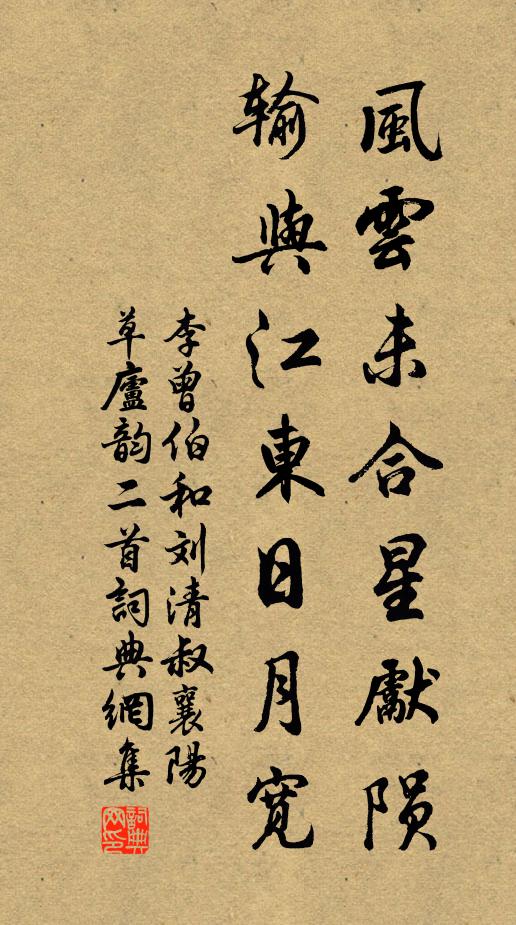 風雲未合星獻陨
輸與江東日月寬
李曾伯和刘清叔襄陽
草廬韵二首詞典網集
詞典网印